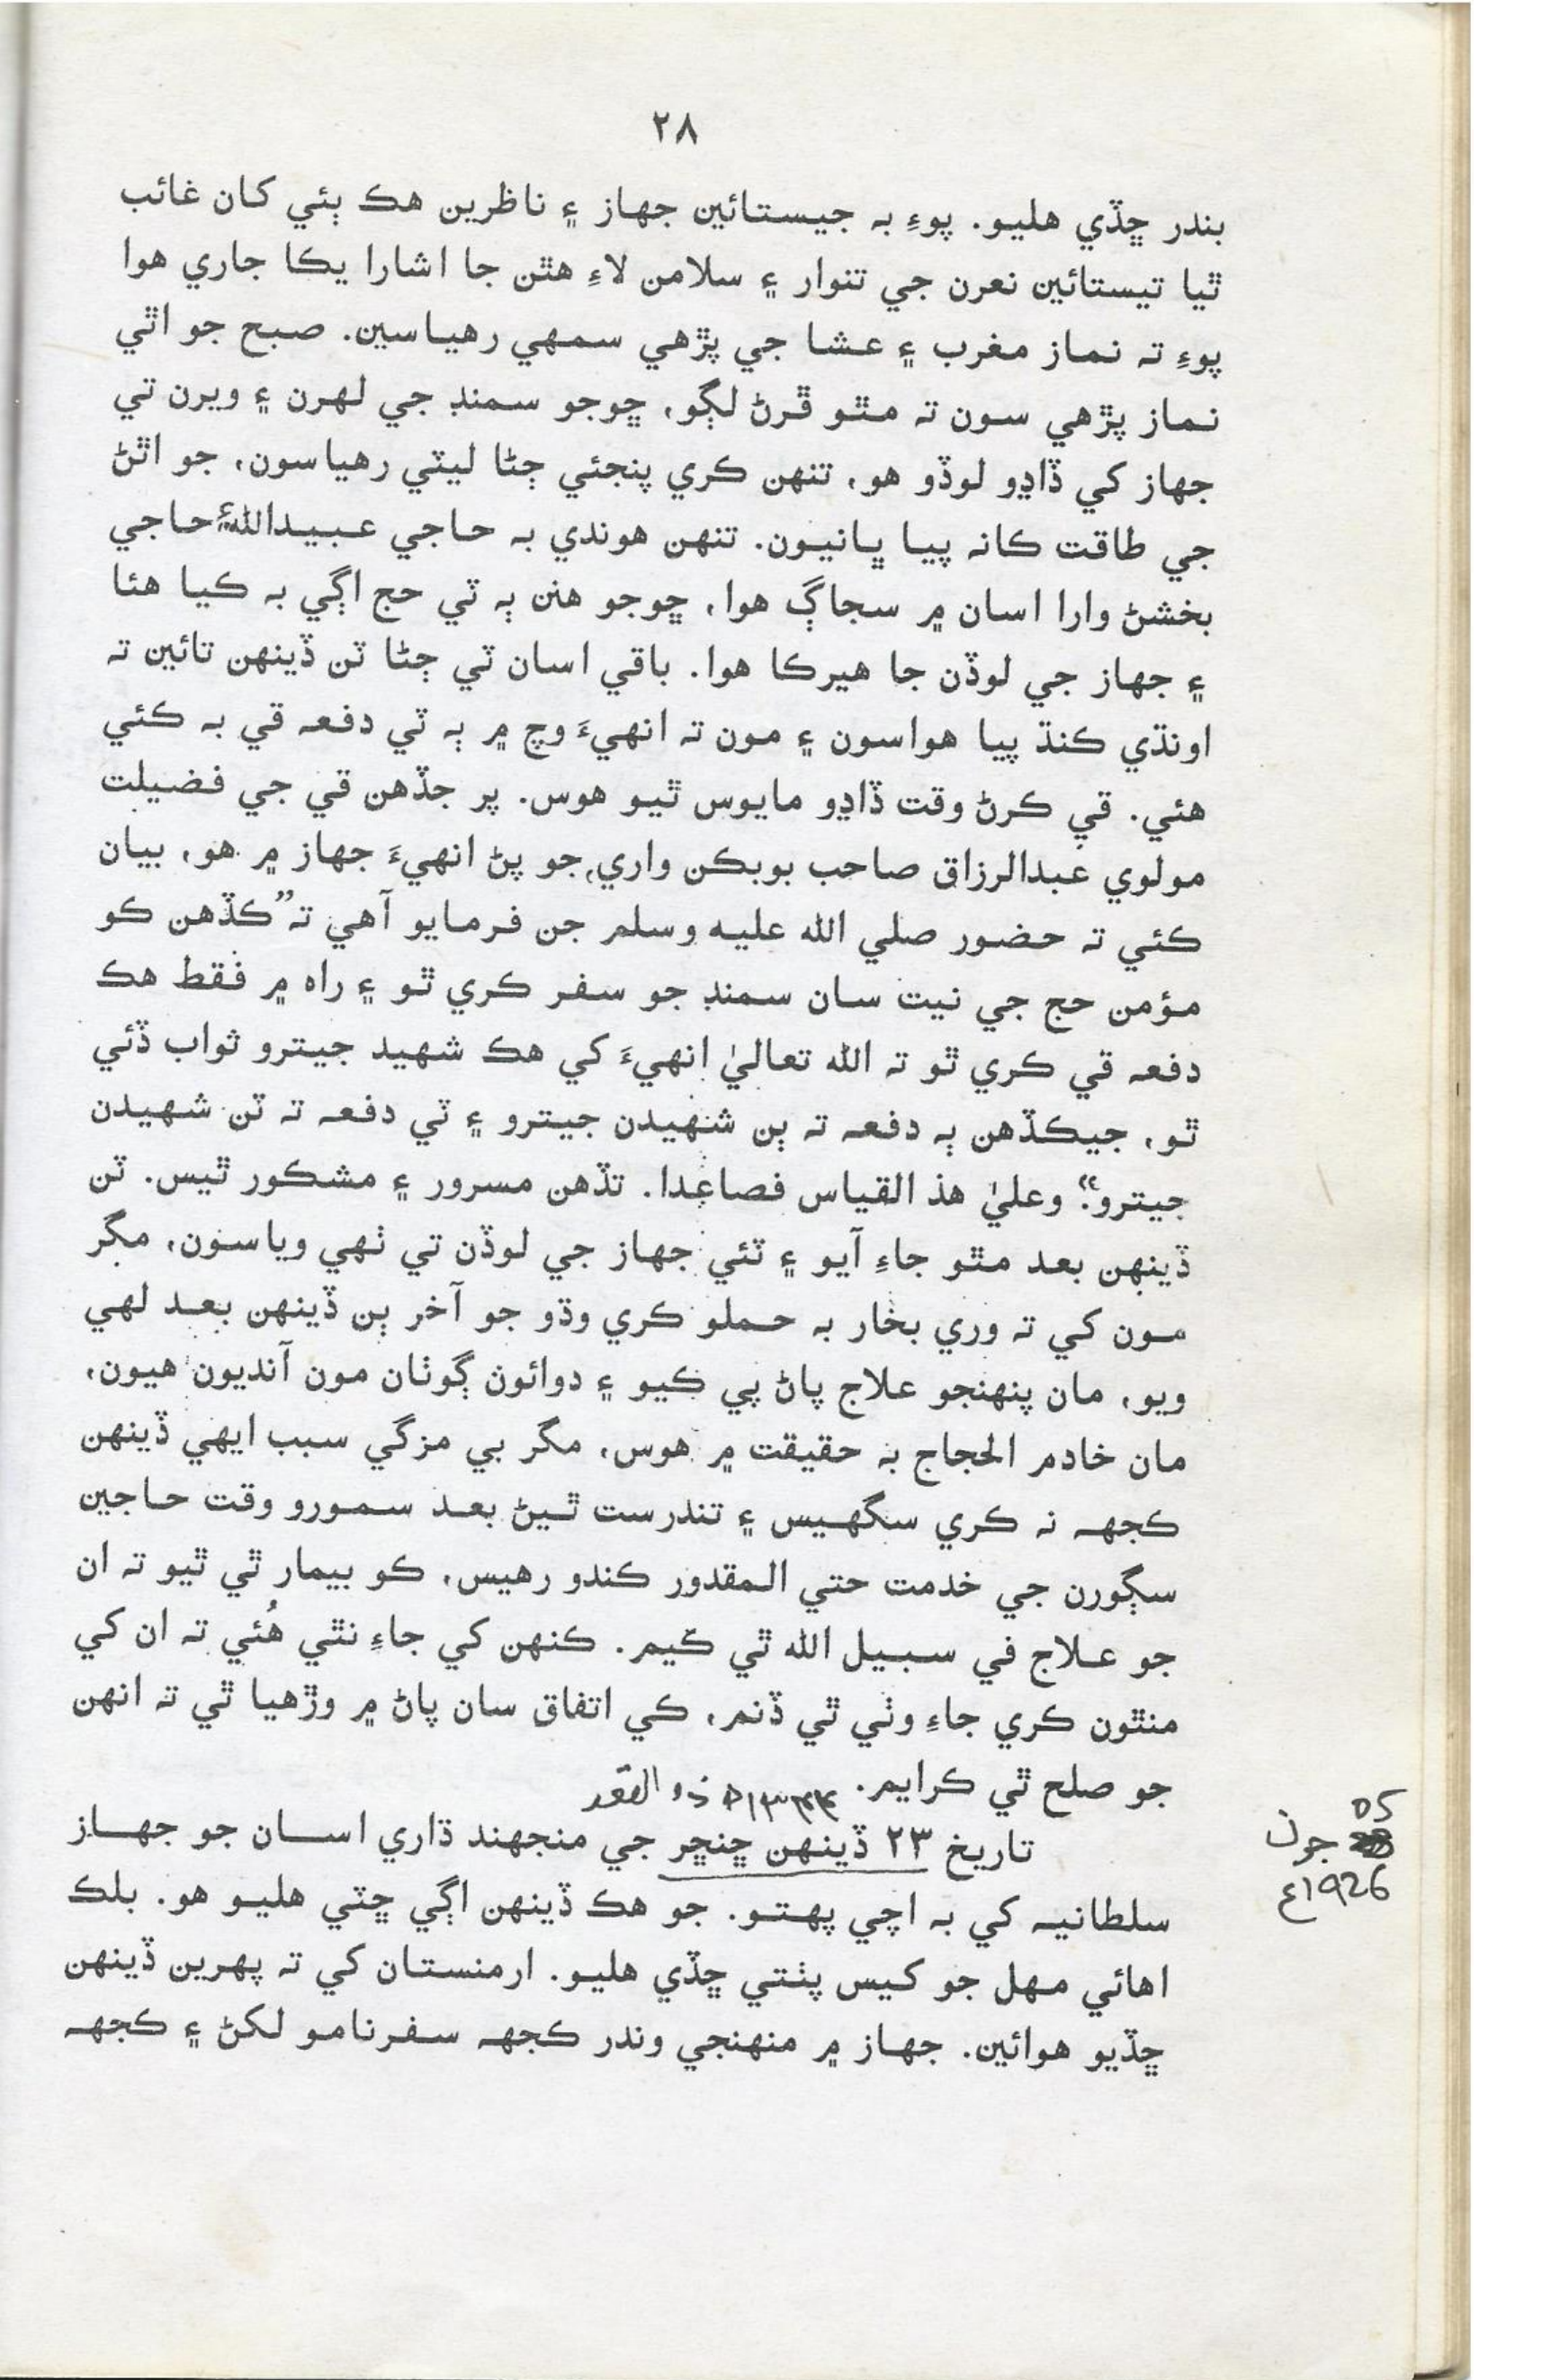 ٢٨
بندر ڇڏي هليو. پوءِ به جيستائين جهاز ۽ ناظرين هڪ ٻئي کان غائب
ٿيا تيستائين نعرن جي تنوار ۽ سلامن لاءِ هٿن جا اشارا يڪا جاري هوا
پوءِ ته نماز مغرب ۽ عشا جي پڙهي سمهي رهياسين. صبح جو اٿي
نماز پڙهي سون ته مٿو ڦرڻ لڳو، ڇوجو سمنڊ جي لهرن ۽ ويرن تي
جهاز کي ڏاڍو لوڏو هو، تنهن ڪري پنجئي ڄڻا ليٽي رهياسون، جو اٿڻ
جي طاقت ڪانه پيا ڀانيون. تنهن هوندي به حاجي عبيدالله ۽ حاجي
بخشڻ وارا اسان ۾ سجاڳ هوا، ڇوجو هنن ٻه ٽي حج اڳي به ڪيا هئا
۽ جهاز جي لوڏن جا هيرڪا هوا. باقي اسان ٽي ڄڻا ٽن ڏينهن تائين ته
اونڌي ڪنڌ پيا هواسون ۽ مون ته انهيءَ وچ ۾ ٻه ٽي دفعه قي به ڪئي
هئي. قي ڪرڻ وقت ڏاڍو مايوس ٿيو هوس. پر جڏهن قي جي فضيلت
مولوي عبدالرزاق صاحب بوبڪن واري، جو پڻ انهيءَ جهاز ۾ هو، بيان
ڪئي ته حضور صلي الله عليه وسلم جن فرمايو آهي ته ”ڪڏهن ڪو
مؤمن حج جي نيت سان سمنڊ جو سفر ڪري ٿو ۽ راه ۾ فقط هڪ
دفعه قي ڪري ٿو ته الله تعاليٰ انهيءَ کي هڪ شهيد جيترو ثواب ڏئي
ٿو، جيڪڏهن ٻه دفعه ته ٻن شهيدن جيترو ۽ ٽي دفعه ته ٽن شهيدن
جيترو“. وعليٰ هذ القياس فصاعدا. تڏهن مسرور ۽ مشڪور ٿيس. ٽن
ڏينهن بعد مٿو جاءِ آيو ۽ ٽئي جهاز جي لوڏن تي ٺهي وياسون، مگر
مون کي ته وري بخار به حملو ڪري وڌو جو آخر ٻن ڏينهن بعد لهي
ويو، مان پنهنجو علاج پاڻ پي ڪيو ۽ دوائون ڳوٺان مون آنديون هيون،
مان خادم الحجاج به حقيقت ۾ هوس، مگر بي مزگي سبب ايهي ڏينهن
ڪجهه نه ڪري سگهيس ۽ تندرست ٿيڻ بعد سمورو وقت حاجين
سڳورن جي خدمت حتي المقدور ڪندو رهيس، ڪو بيمار ٿي ٿيو ته ان
جو علاج في سبيل الله ٿي ڪيم. ڪنهن کي جاءِ نٿي هُئي ته ان کي
منٿون ڪري جاءِ وٺي ٿي ڏنم، ڪي اتفاق سان پاڻ ۾ وڙهيا ٿي ته انهن
جو صلح ٿي ڪرايم. ١٣٤٤ھ ذوالقعد
تاريخ ٢٣ ڏينهن ڇنڇر جي منجهند ڌاري اسان جو جهاز
05 جون
1926ع
سلطانيه کي به اچي پهتو. جو هڪ ڏينهن اڳي ڇٽي هليو هو. بلڪ
اهائي مهل جو ڪيس پٺتي ڇڏي هليو. ارمنستان کي ته پهرين ڏينهن
ڇڏيو هوائين. جهاز ۾ منهنجي وندر ڪجهه سفرنامو لکڻ ۽ ڪجهه